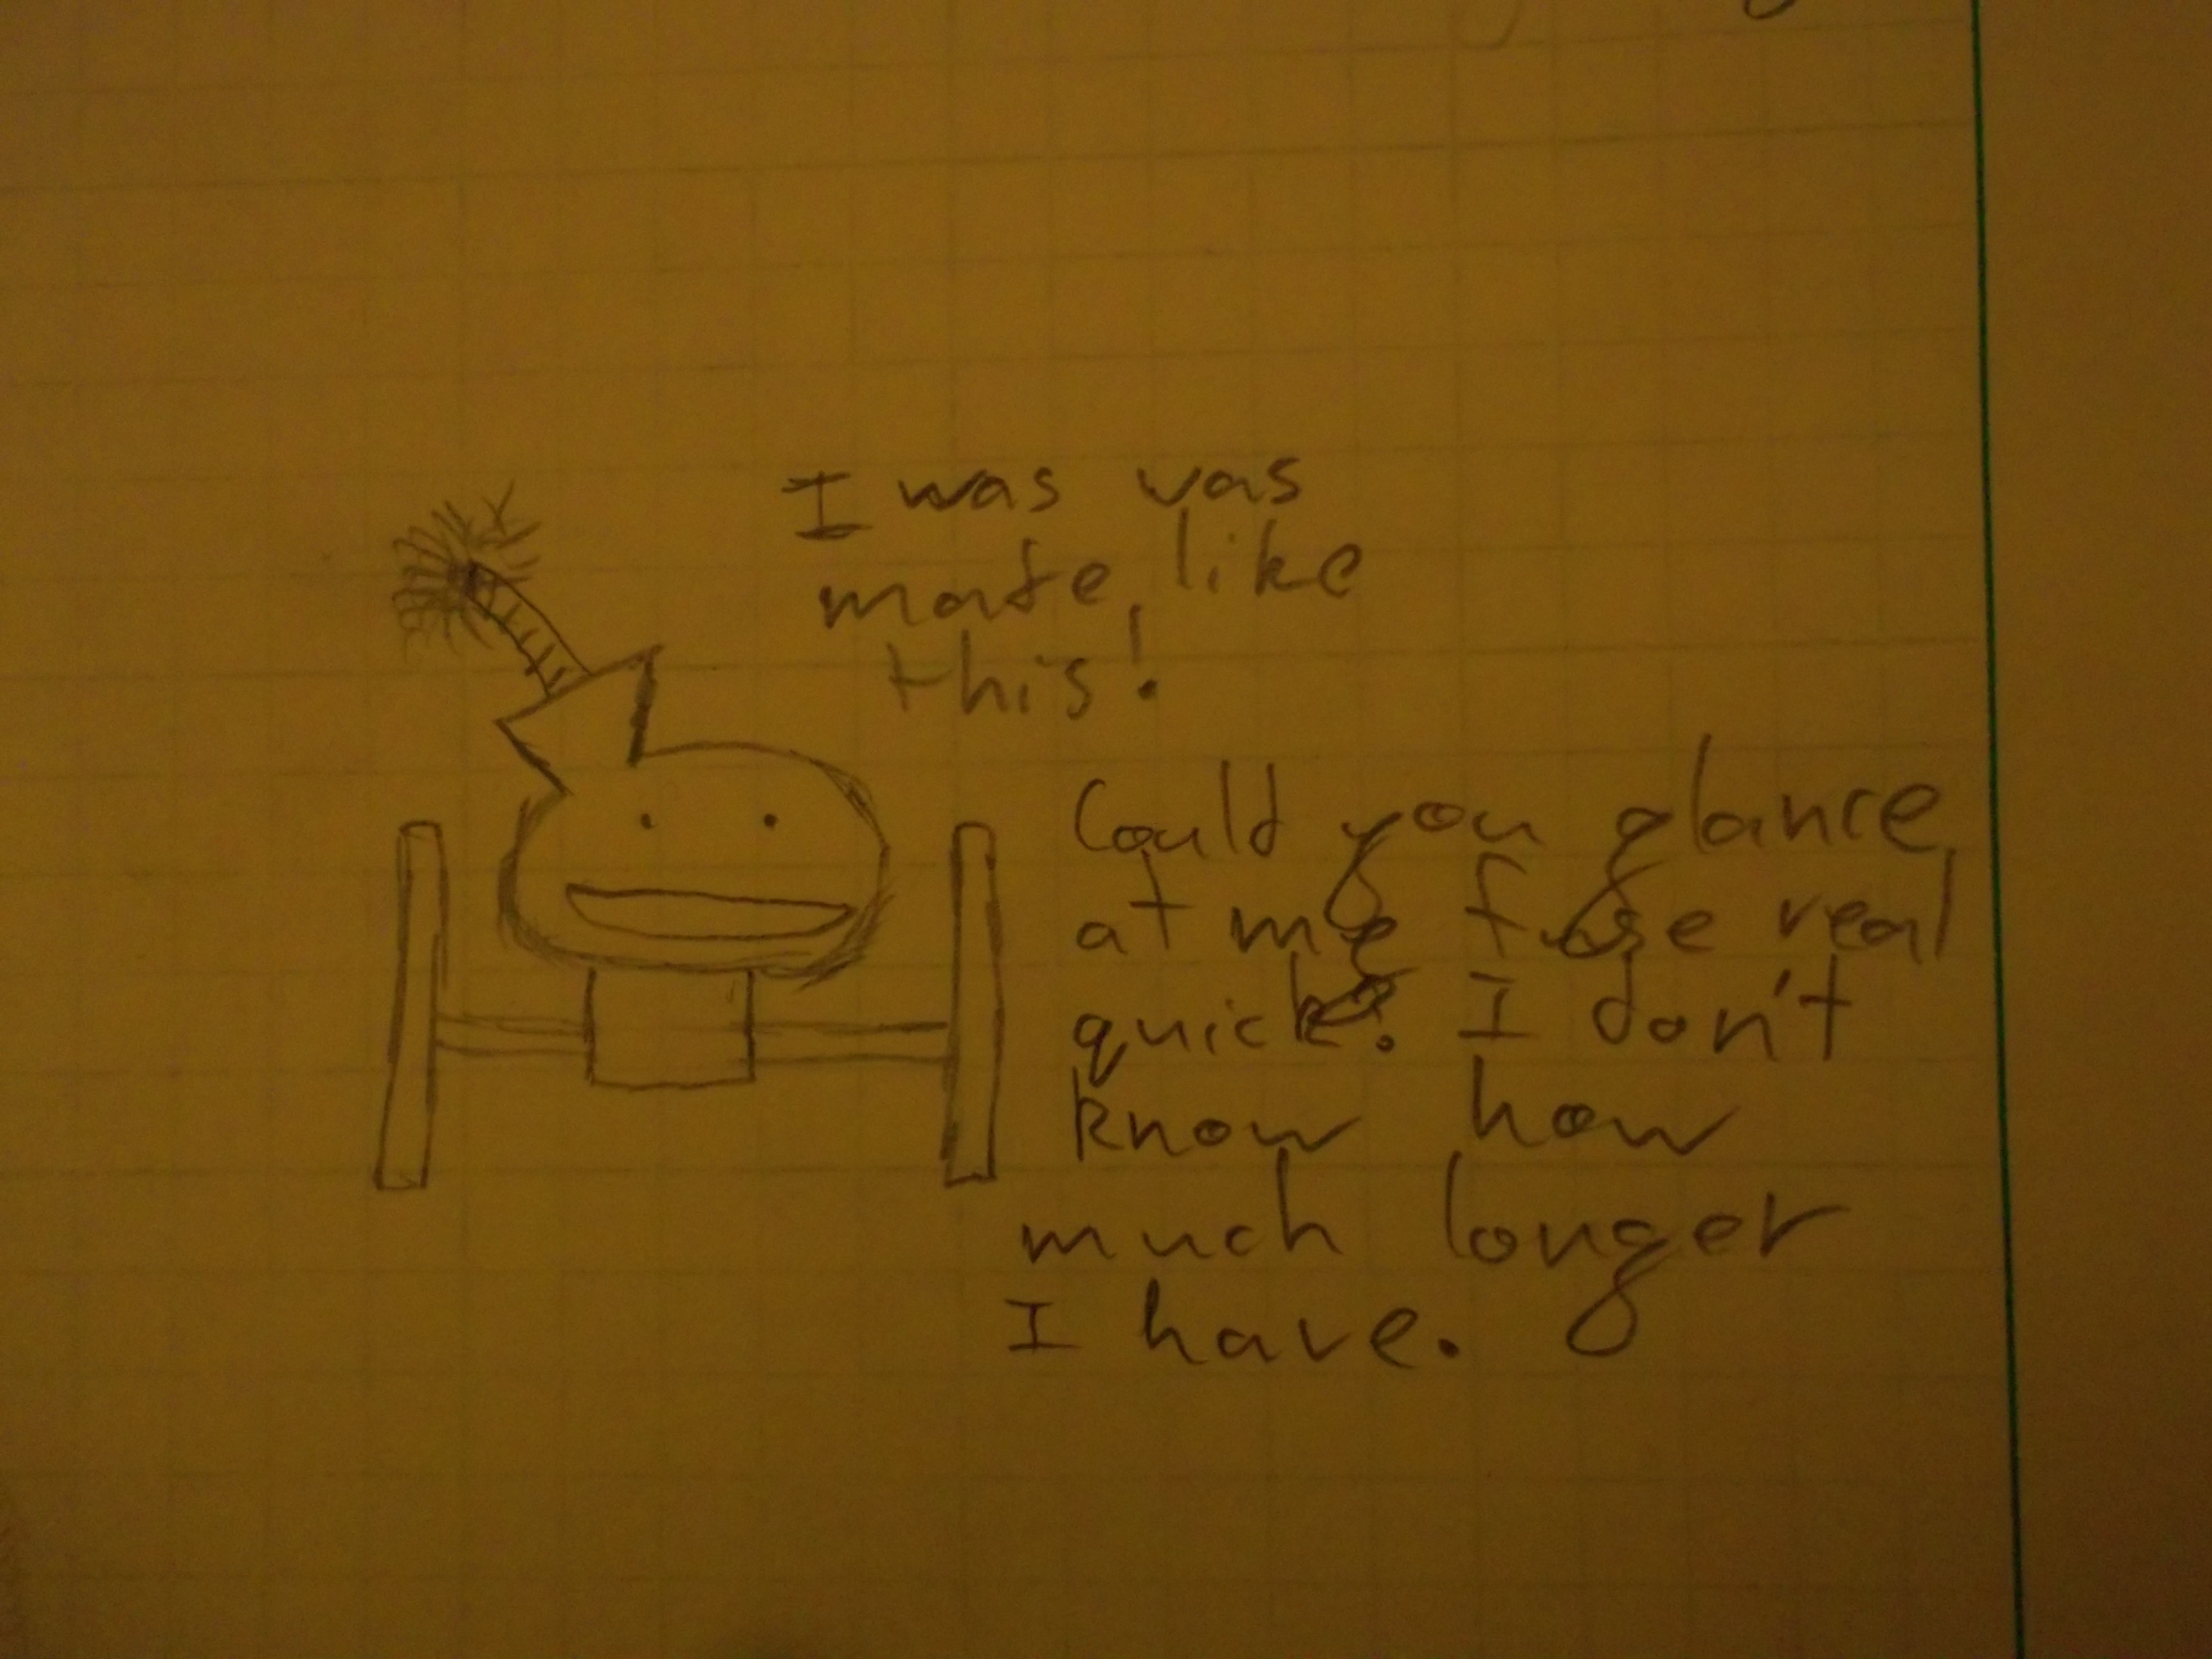 I was vas
made, like
this!
Could you glance
at me fuse real
quick. I don't
know how
much longer
I have.